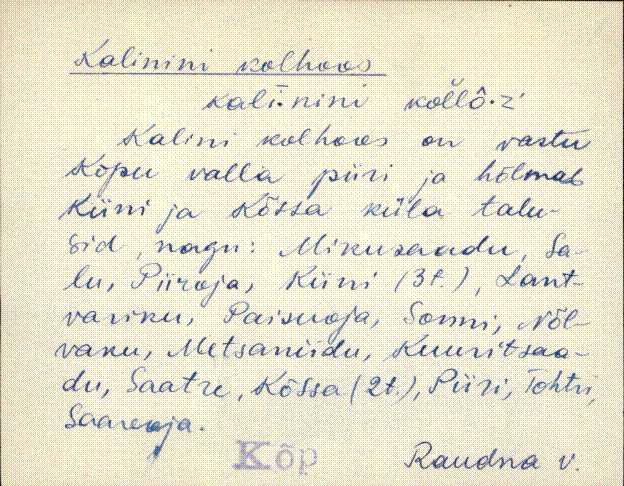 Kalinini kolhoos
kali·nini kol̆lô·z'
Kalini kolhoos on vastu
Kõpu valla piiri ja hõlmab
Kiini ja Kõssa küla talu-
sid, nagu: Mikusaadu, Sa-
lu, Piiroja, Kiini (3t.), Lant-
variku, Paisuoja, Sonni, Nõl-
vaku, Metsaniidu, Kuuritsaa-
du, Saatre, Kõssa (2t.), Piiri, Tohtri,
Saareoja.
Kõp
Raudna v.